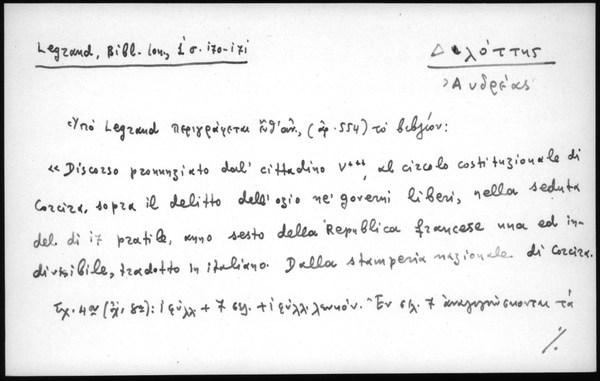 Legrand, Bibl. Ion., 1 σ. 170-171
Διλόττης
Ἀνδρέας
Ὑπό Legrand περιγράφεται ἐνθ' ἀν., (ἀρ. 554) τό βιβλίον:
« Discorso pronunziato dal' cittadino V***, al circolo costituzionale di
Corcira, sopra il delitto dell' ozio ne' governi liberi, nella seduta
del di 17 pratile, anno sesto della Republica francese una ed in-
divisibile, tradotto in italiano. Dalla stamperia nazionale di Corcira.
σχ. 4ον (ὄχι 8ον): 1 φύλλ + 7 σελ. + 1 φύλλ. λευκόν. Ἐν σελ. 7 ἀναγιγνώσκονται τά
./.